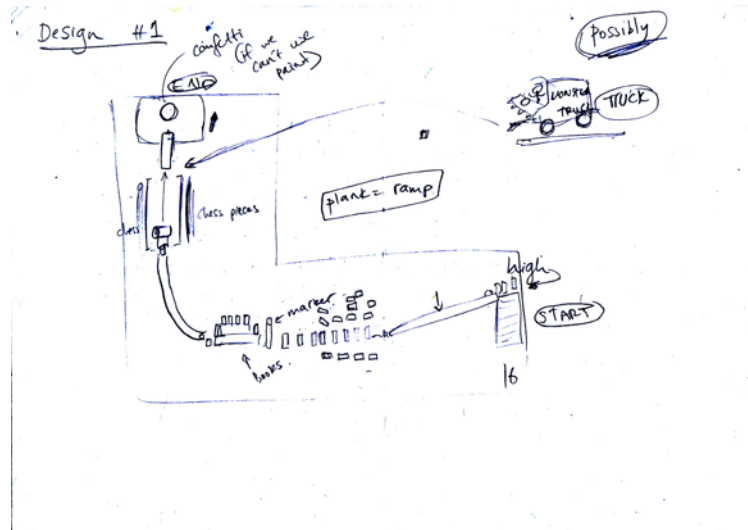 Design #1
confetti
(if we
can't use
paint)
END
Possibly
MONSTER
TRUCK
TRUCK
plank = ramp
chess
chess pieces
high
START
marker
Books.
16